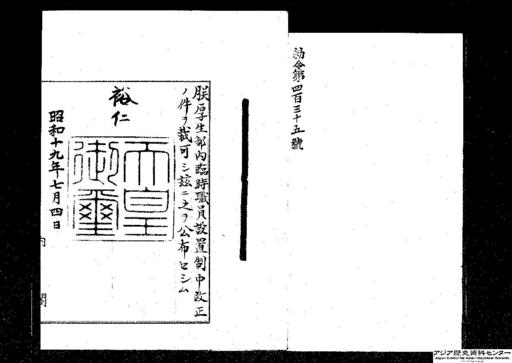 勅令第四百三十五號
朕厚生部內臨時職員設置制中改正
ノ件ヲ裁可シ玆ニ之ヲ公布セシム
裕仁
天皇
御璽
昭和十九年七月四日
內閣
アジア歴史資料センター
Japan Center for Asian Historical Records